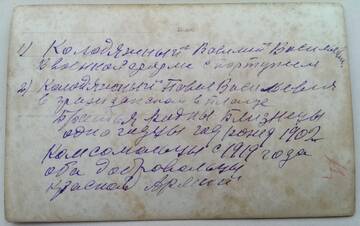 1) Колодяжный Василий Васильевич
в военной форме с портупеем
2) Колодяжный Павел Васильевич
в гражданском в плаще
Братья родны близнецы
одногодцы год рожд 1902
Комсомольцы с 1919 года
оба добровольцы
Красной Армии